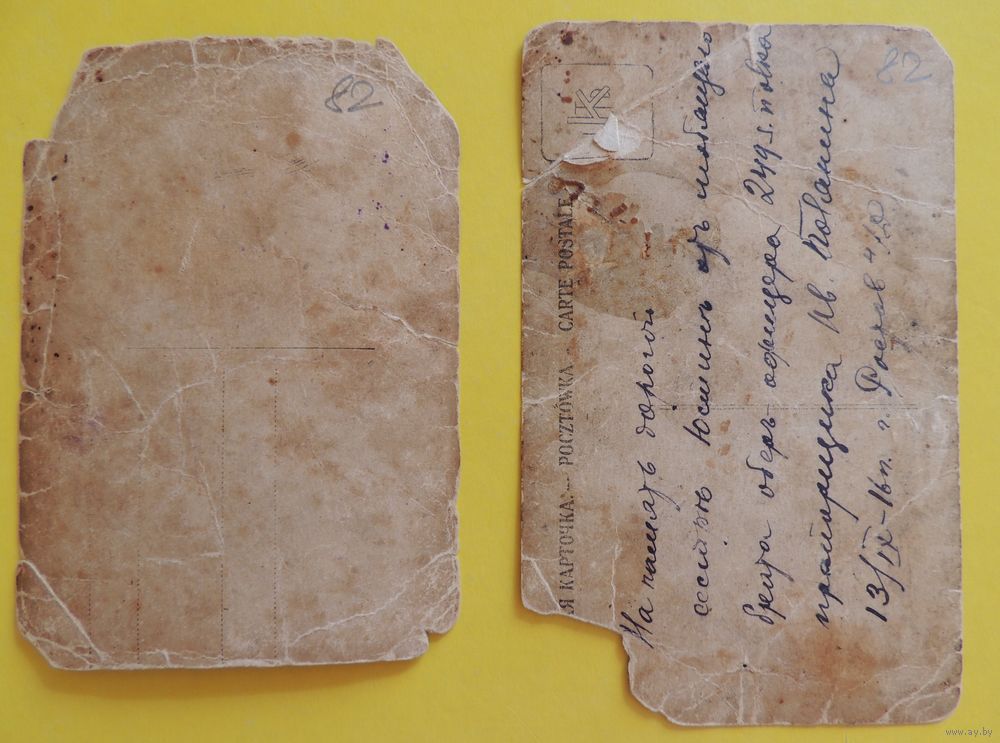 82
82
К
Я КАРТОЧКА. – POCZTÓWKA. – CARTE POSTALE
На память дорогой
сестрѣ Юстинѣ отъ любящаго
брата оберъ-офицера 249 г. полка
прапорщика Ив.
13/IX-16 г. г. Ростов н/Д
www.ay.by